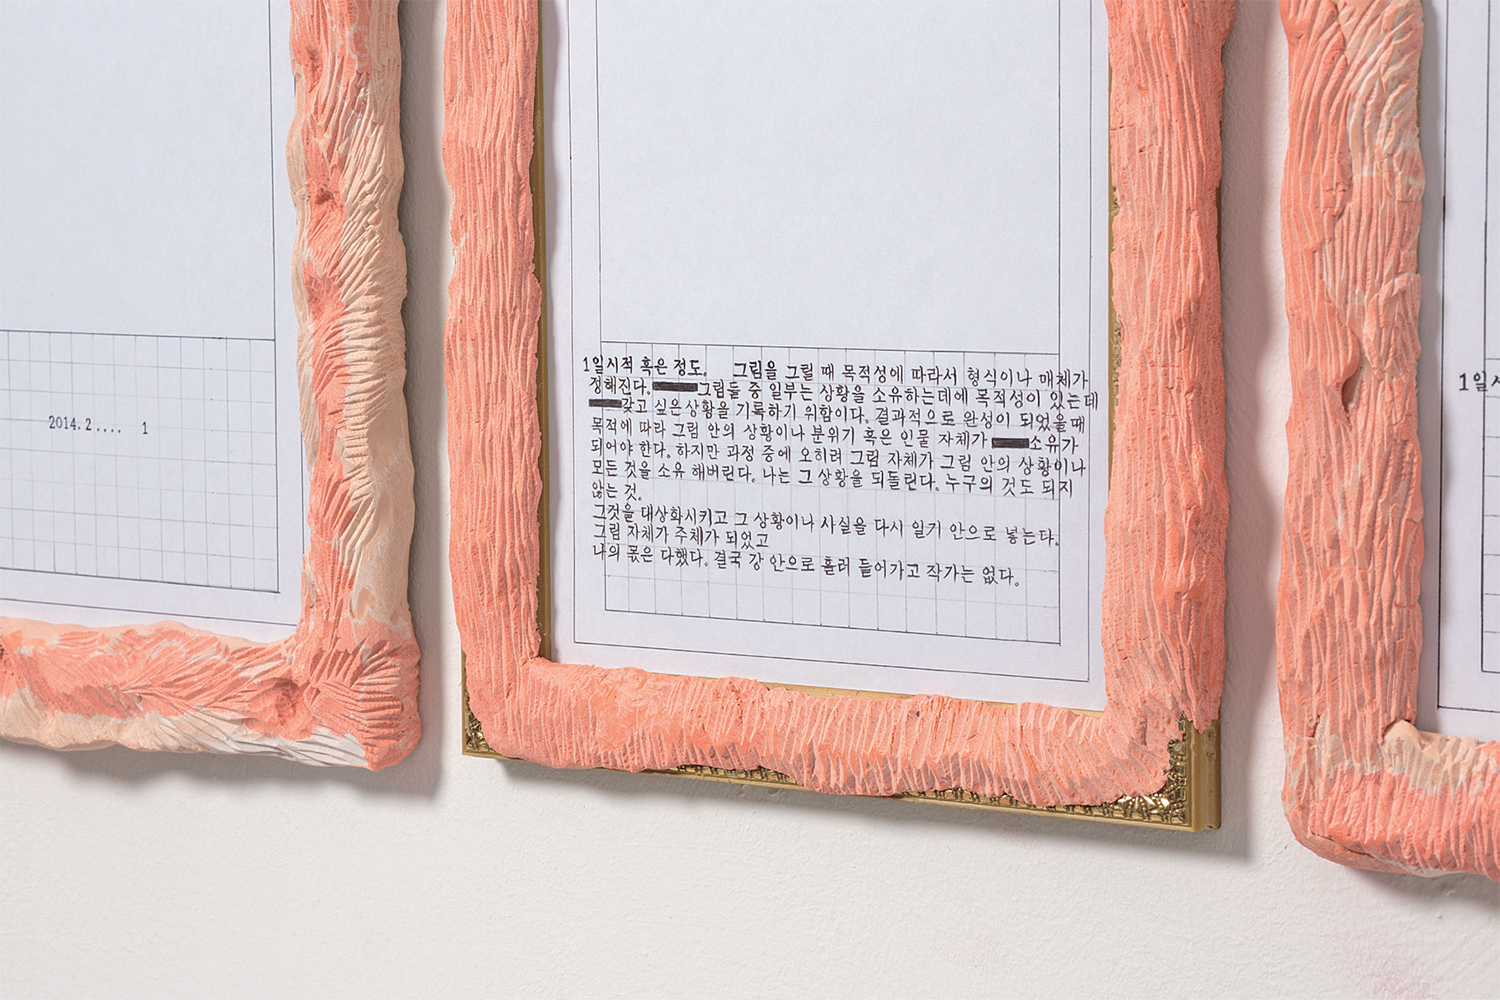 2014.2.... 1
1일시적 혹은 정도. 그림을 그릴 때 목적성에 따라서 형식이나 매체가
정해진다. 그림들 중 일부는 상황을 소유하는데에 목적성이 있는데
갖고 싶은 상황을 기록하기 위함이다. 결과적으로 완성이 되었을 때
목적에 따라 그림 안의 상황이나 분위기 혹은 인물 자체가 소유가
되어야 한다. 하지만 과정 중에 오히려 그림 자체가 그림 안의 상황이나
모든 것을 소유 해버린다. 나는 그 상황을 되돌린다. 누구의 것도 되지
않는 것.
그것을 대상화시키고 그 상황이나 사실을 다시 일기 안으로 넣는다.
그림 자체가 주체가 되었고
나의 몫은 다했다. 결국 강 안으로 흘러 들어가고 작가는 없다.